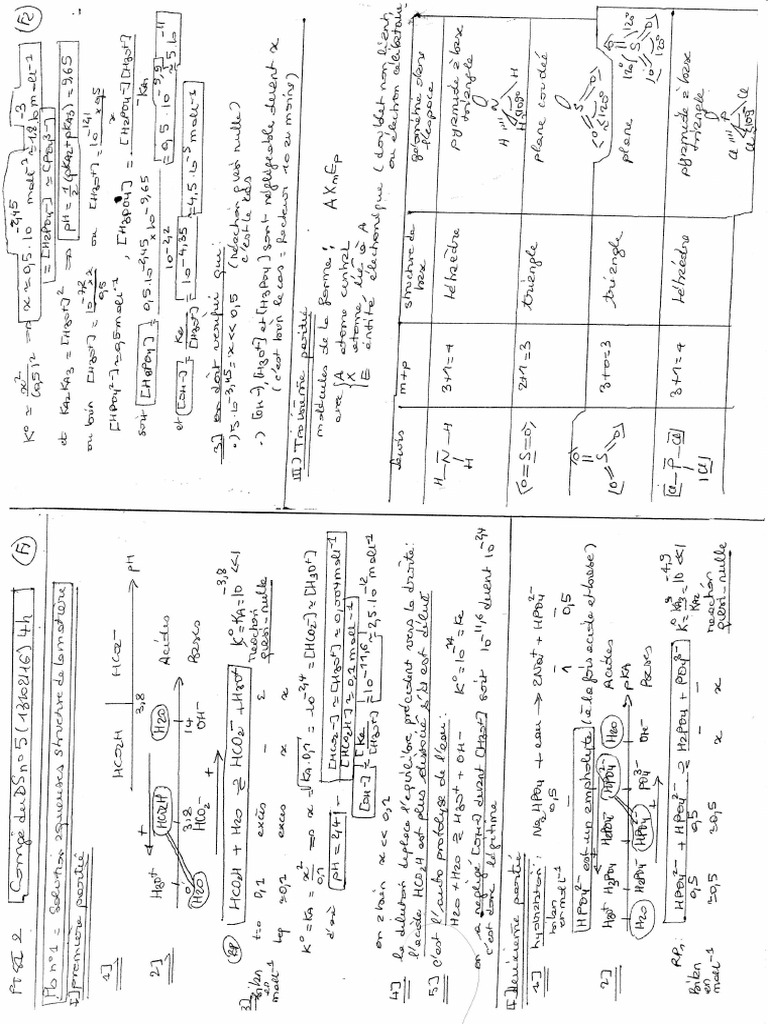 PTSI 2 Corrigé du DS n°5 (13/02/16) 4h P1
Pb n°1 = Solutions aqueuses structure de la matière
I] première partie
1]
HCO2H HCO2-
3,8 → pH
2]
H3O+ HCO2H H2O Acides
0 3,8 14
H2O HCO2- OH- Bases
RP HCO2H + H2O ⇌ HCO2- + H3O+ K° = KA = 10^-3,8 << 1
réaction quasi-nulle
3] bilan en mol.l-1
t=0 0,1 excès - ε
teq ≈0,1 excès x x
K° = KA = x²/0,1 ⇒ x = √KA.0,1 = 10^-2,4 = [HCO2-] = [H3O+]
d'où pH = 2,4
[HCO2-] = [H3O+] = 0,004 mol.l-1
[HCO2H] = 0,1 mol.l-1
[OH-] = Ke/[H3O+] = 10^-11,6 ≈ 2,5.10^-12 mol.l-1
on a bien x << 0,1
4] la dilution déplace l'équilibre précédent vers la droite:
l'acide HCO2H est plus dissocié s'il est dilué
5] c'est l'autoprotolyse de l'eau:
H2O + H2O ⇌ H3O+ + OH- K° = 10^-14 = Ke
on a négligé [OH-] devant [H3O+] soit 10^-11,6 devant 10^-2,4
c'est donc légitime
II] deuxième partie
1] hydratation: Na2HPO4 + eau → 2Na+ + HPO4^2-
bilan en mol.l-1
0,5 - -
- 1 0,5
HPO4^2- est un ampholyte (à la fois acide et base)
2]
H3O+ H3PO4 H2PO4- HPO4^2- H2O Acides
→ pKA
H2O H2PO4- HPO4^2- PO4^3- OH- Bases
RP1: HPO4^2- + HPO4^2- ⇌ H2PO4- + PO4^3- K° = KA3/KA2 = 10^-4,9 << 1
réaction quasi-nulle
bilan en mol.l-1
0,5 0,5 - -
≈0,5 ≈0,5 x x
P2
K° = x²/(0,5)² ⇒ x = 0,5.10^-2,45 mol.l-1 = 1,8.10^-3 mol.l-1
= [H2PO4-] = [PO4^3-]
et KA2 KA3 = [H3O+]² ⇒ pH = 1/2(pKA2 + pKA3) = 9,65
[HPO4^2-] ≈ 0,5 mol.l-1
3] on doit vérifier que:
•) 5.10^-3,45 = x << 0,5 (réaction quasi nulle)
c'est le cas
•) [OH-], [H3O+] et [H3PO4] sont négligeables devant x
(c'est bien le cas = facteur 10 au moins)
III) Troisième partie
molécules de la forme: AXmEp
avec A atome central
X atome lié à A
E entité électronique (doublet non liant, ou électron célibataire)
Lewis m+p structure de base géométrie dans l'espace
H-N-H H 3+1=4 tétraèdre pyramide à base triangle
O=S=O 2+1=3 triangle plane coudée
3+0=3 triangle plane
Cl-P-Cl Cl 3+1=4 tétraèdre pyramide à base triangle